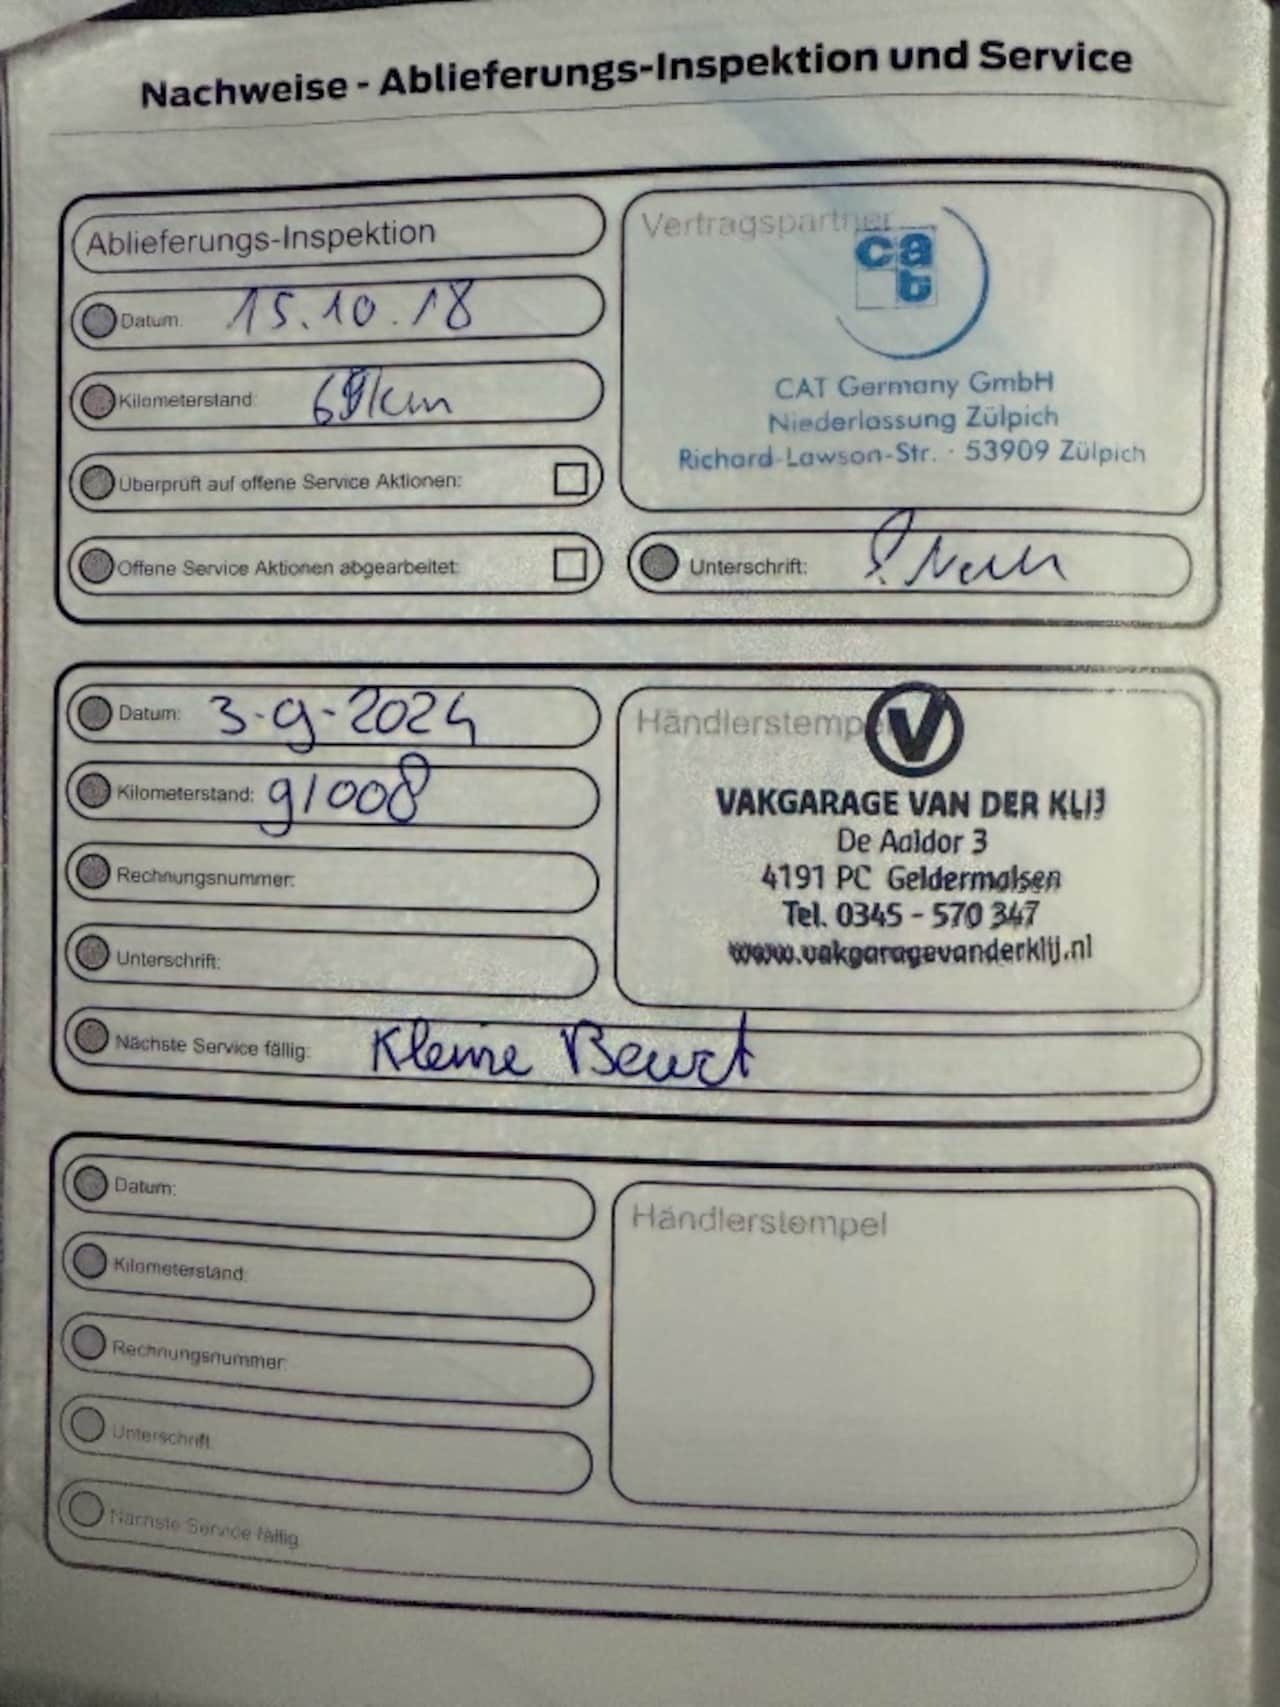 Nachweise - Ablieferungs-Inspektion und Service
Ablieferungs-Inspektion
Datum: 15.10.18
Kilometerstand: km
Überprüft auf offene Service Aktionen:
Offene Service Aktionen abgearbeitet:
Vertragspartner
cat
CAT Germany GmbH
Niederlassung Zülpich
Richard-Lawson-Str. · 53909 Zülpich
Unterschrift:
Datum: 3-9-2024
Kilometerstand: 91008
Rechnungsnummer:
Unterschrift:
Nächste Service fällig: Kleine Beurt
Händlerstempel
V
VAKGARAGE VAN DER KLIJ
De Aaldor 3
4191 PC Geldermalsen
Tel. 0345 - 570 347
www.vakgaragevanderklij.nl
Datum:
Kilometerstand:
Rechnungsnummer:
Unterschrift:
Nächste Service fällig:
Händlerstempel